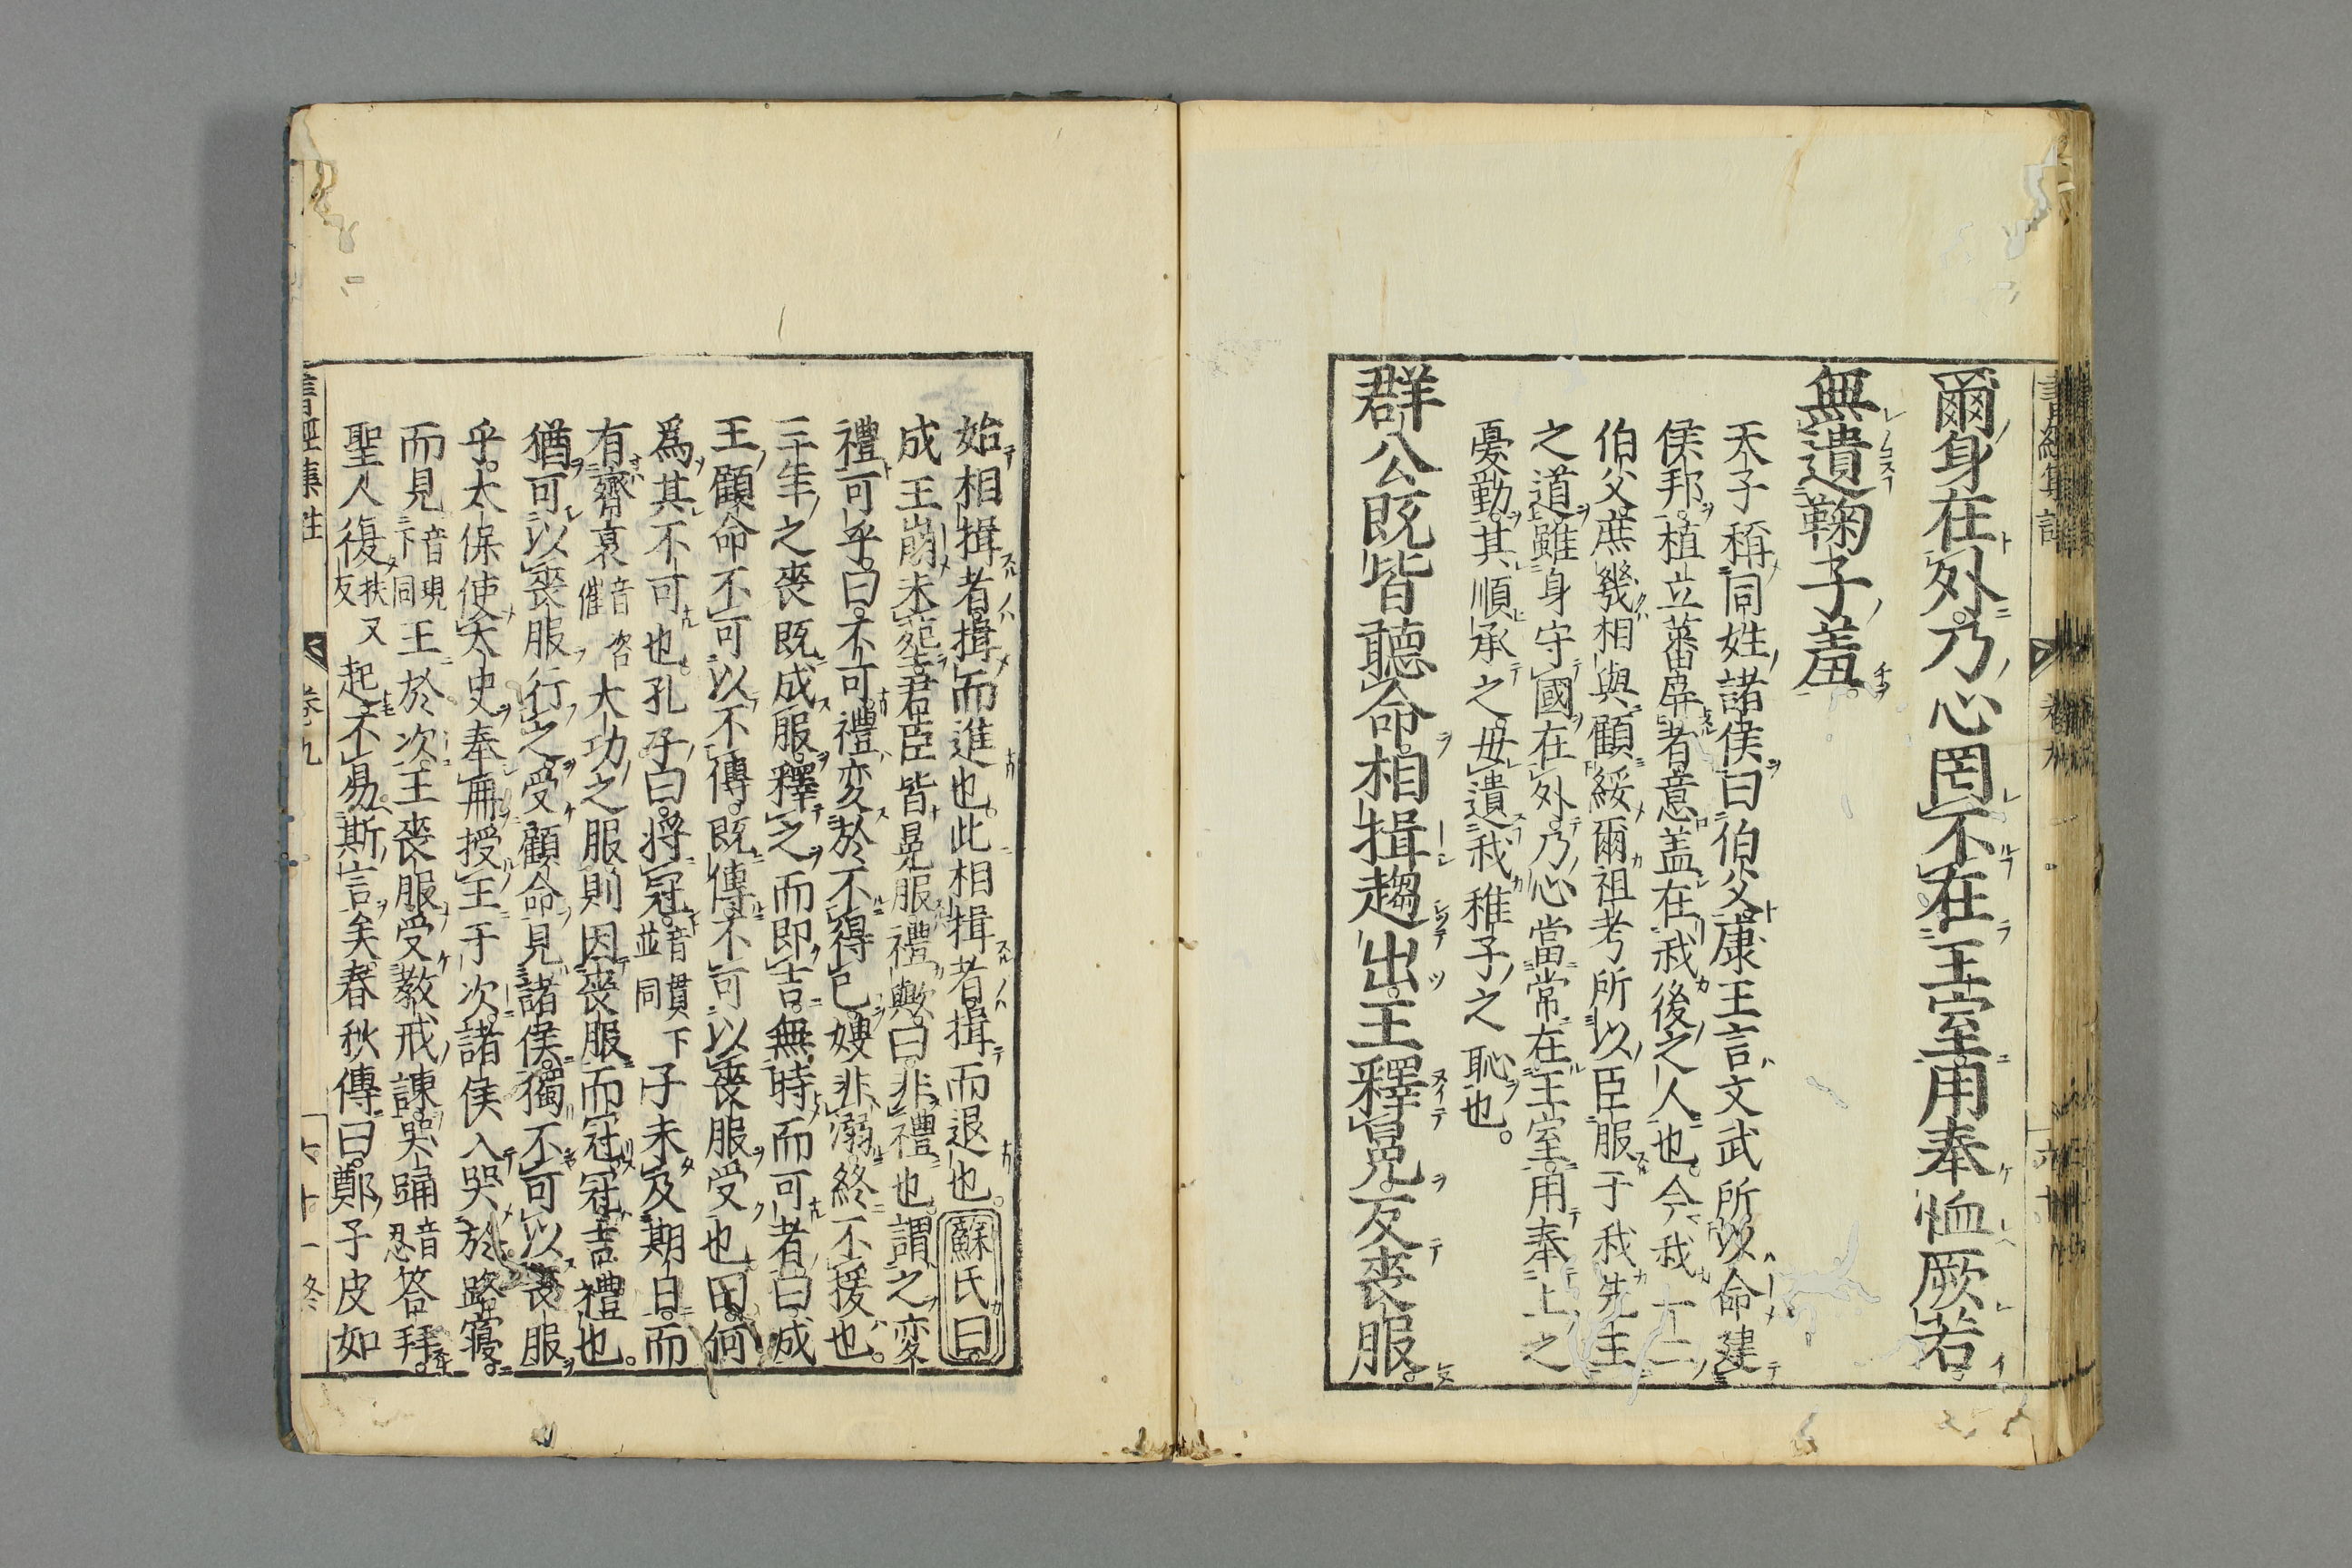 爾身在外。乃心罔不在王室。用奉恤厥若。
無遺鞠子羞。
天子稱同姓諸侯曰伯父。康王言文武所以命建
侯邦。植立蕃屏者。意盖在我後之人也。今我一二
伯父。庶幾相與顧綏爾祖考所以臣服于我先王
之道。雖身守國在外。乃心當常在王室。用奉上之
憂勤。其順承之。毋遺我稚子之恥也。
群公既皆聽命。相揖趨出。王釋冕反喪服。
始相揖者。揖而進也。此相揖者。揖而退也。蘇氏曰。
成王崩未葬。君臣皆冕服。禮歟。曰。非禮也。謂之変
禮可乎。曰。不可。禮変於不得已。嫂非溺。終不援也。
三年之喪既成服。釋之而即吉。無時而可者。曰。成
王顧命不可以不傳。既傳。不可以喪服受也。曰。何
爲其不可也。孔子曰。将冠。音貫下並同子未及期日。而
有齊衰音咨催大功之服。則因喪服而冠。冠吉禮也。
猶可以喪服行之。受顧命見諸侯。獨不可以喪服
乎。太保使太史奉冊授王于次。諸侯入哭於路寢。
而見音現下同王於次。王喪服受教戒諫。哭踊音忍答拜。
聖人復扶又反起。不易斯言矣。春秋傳曰。鄭子皮如
書經集註 卷九 六十一終